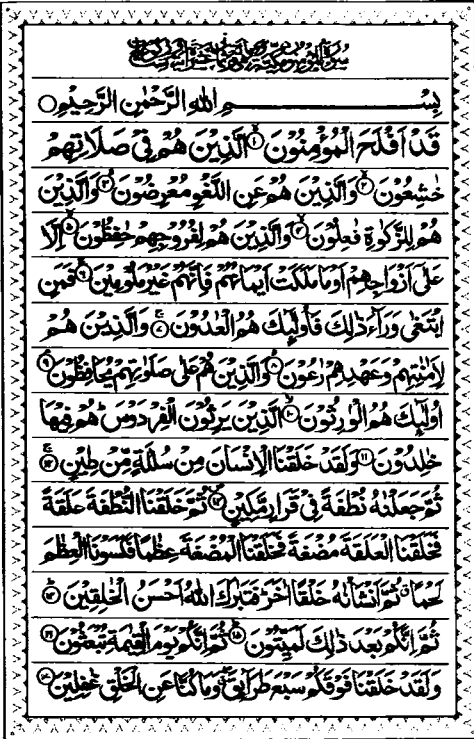 بِسْمِ اللهِ الرَّحْمٰنِ الرَّحِيْمِ
قَدْ اَفْلَحَ الْمُؤْمِنُوْنَ ۙ۱ الَّذِيْنَ هُمْ فِيْ صَلَاتِهِمْ
خٰشِعُوْنَ ۙ۲ وَالَّذِيْنَ هُمْ عَنِ اللَّغْوِ مُعْرِضُوْنَ ۙ۳ وَالَّذِيْنَ
هُمْ لِلزَّكٰوةِ فٰعِلُوْنَ ۙ۴ وَالَّذِيْنَ هُمْ لِفُرُوْجِهِمْ حٰفِظُوْنَ ۙ۵ اِلَّا
عَلٰٓى اَزْوَاجِهِمْ اَوْ مَا مَلَكَتْ اَيْمَانُهُمْ فَاِنَّهُمْ غَيْرُ مَلُوْمِيْنَ ۚ۶ فَمَنِ
ابْتَغٰى وَرَآءَ ذٰلِكَ فَاُولٰٓئِكَ هُمُ الْعٰدُوْنَ ۚ۷ وَالَّذِيْنَ هُمْ
لِاَمٰنٰتِهِمْ وَعَهْدِهِمْ رٰعُوْنَ ۙ۸ وَالَّذِيْنَ هُمْ عَلٰى صَلَوٰتِهِمْ يُحَافِظُوْنَ ۘ۹
اُولٰٓئِكَ هُمُ الْوٰرِثُوْنَ ۙ۱۰ الَّذِيْنَ يَرِثُوْنَ الْفِرْدَوْسَ ؕ هُمْ فِيْهَا
خٰلِدُوْنَ ۱۱ وَلَقَدْ خَلَقْنَا الْاِنْسَانَ مِنْ سُلٰلَةٍ مِّنْ طِيْنٍ ۚ۱۲
ثُمَّ جَعَلْنٰهُ نُطْفَةً فِيْ قَرَارٍ مَّكِيْنٍ ۪۱۳ ثُمَّ خَلَقْنَا النُّطْفَةَ عَلَقَةً
فَخَلَقْنَا الْعَلَقَةَ مُضْغَةً فَخَلَقْنَا الْمُضْغَةَ عِظٰمًا فَكَسَوْنَا الْعِظٰمَ
لَحْمًا ۗ ثُمَّ اَنْشَاْنٰهُ خَلْقًا اٰخَرَ ؕ فَتَبٰرَكَ اللهُ اَحْسَنُ الْخٰلِقِيْنَ ؕ۱۴
ثُمَّ اِنَّكُمْ بَعْدَ ذٰلِكَ لَمَيِّتُوْنَ ؕ۱۵ ثُمَّ اِنَّكُمْ يَوْمَ الْقِيٰمَةِ تُبْعَثُوْنَ ۱۶
وَلَقَدْ خَلَقْنَا فَوْقَكُمْ سَبْعَ طَرَآئِقَ ۖ وَمَا كُنَّا عَنِ الْخَلْقِ غٰفِلِيْنَ ۱۷